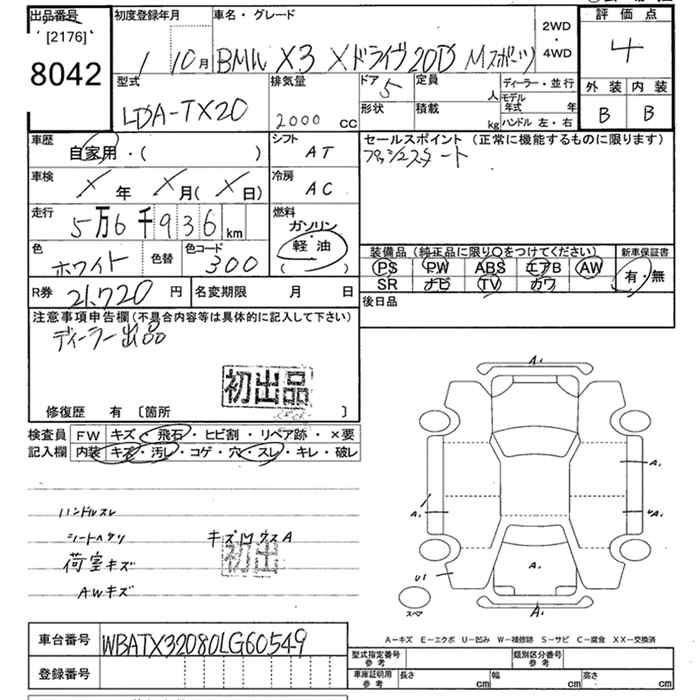 出品番号
[2176]
8042
初度登録年月
1 10月
車名・グレード
BMW X3 Xドライブ20D Mスポーツ
2WD
・
4WD
評価点
4
外装 内装
B B
型式
LDA-TX20
排気量
2000 CC
ドア 5
定員 人
形状
積載 kg
ディーラー・並行
モデル年式 年
ハンドル 左・右
車歴
自家用・( )
シフト
AT
セールスポイント(正常に機能するものに限ります)
プッシュスタート
車検
X年 X月(X日)
冷房
AC
走行
5万6千936km
燃料
ガソリン
軽・油
( )
色
ホワイト
色替
色コード
300
装備品(純正品に限り○をつけてください)
PS PW ABS エアB AW
SR ナビ TV カワ
新車保証書
有・無
R券 21,720円
名変期限 月 日
後日品
注意事項申告欄(不具合内容等は具体的に記入して下さい)
ディーラー出品
初出品
修復歴 有 〔箇所 〕
検査員
記入欄
FW キズ・飛石・ヒビ割・リペア跡・×要
内装 キズ・汚レ・コゲ・穴・スレ・キレ・破レ
ハンドルスレ
シートヘタリ
キズ
荷室キズ
初出
AWキズ
A1
A1
A1
A1
U1
A1
A1
スペア
車台番号 WBATX32080LG60549
登録番号
A-キズ E-エクボ U-凹み W-補修跡 S-サビ C-腐食 XX-交換済
型式指定番号
参考
類別区分番号
参考
車庫証明用
参考
長さ cm 幅 cm 高さ cm